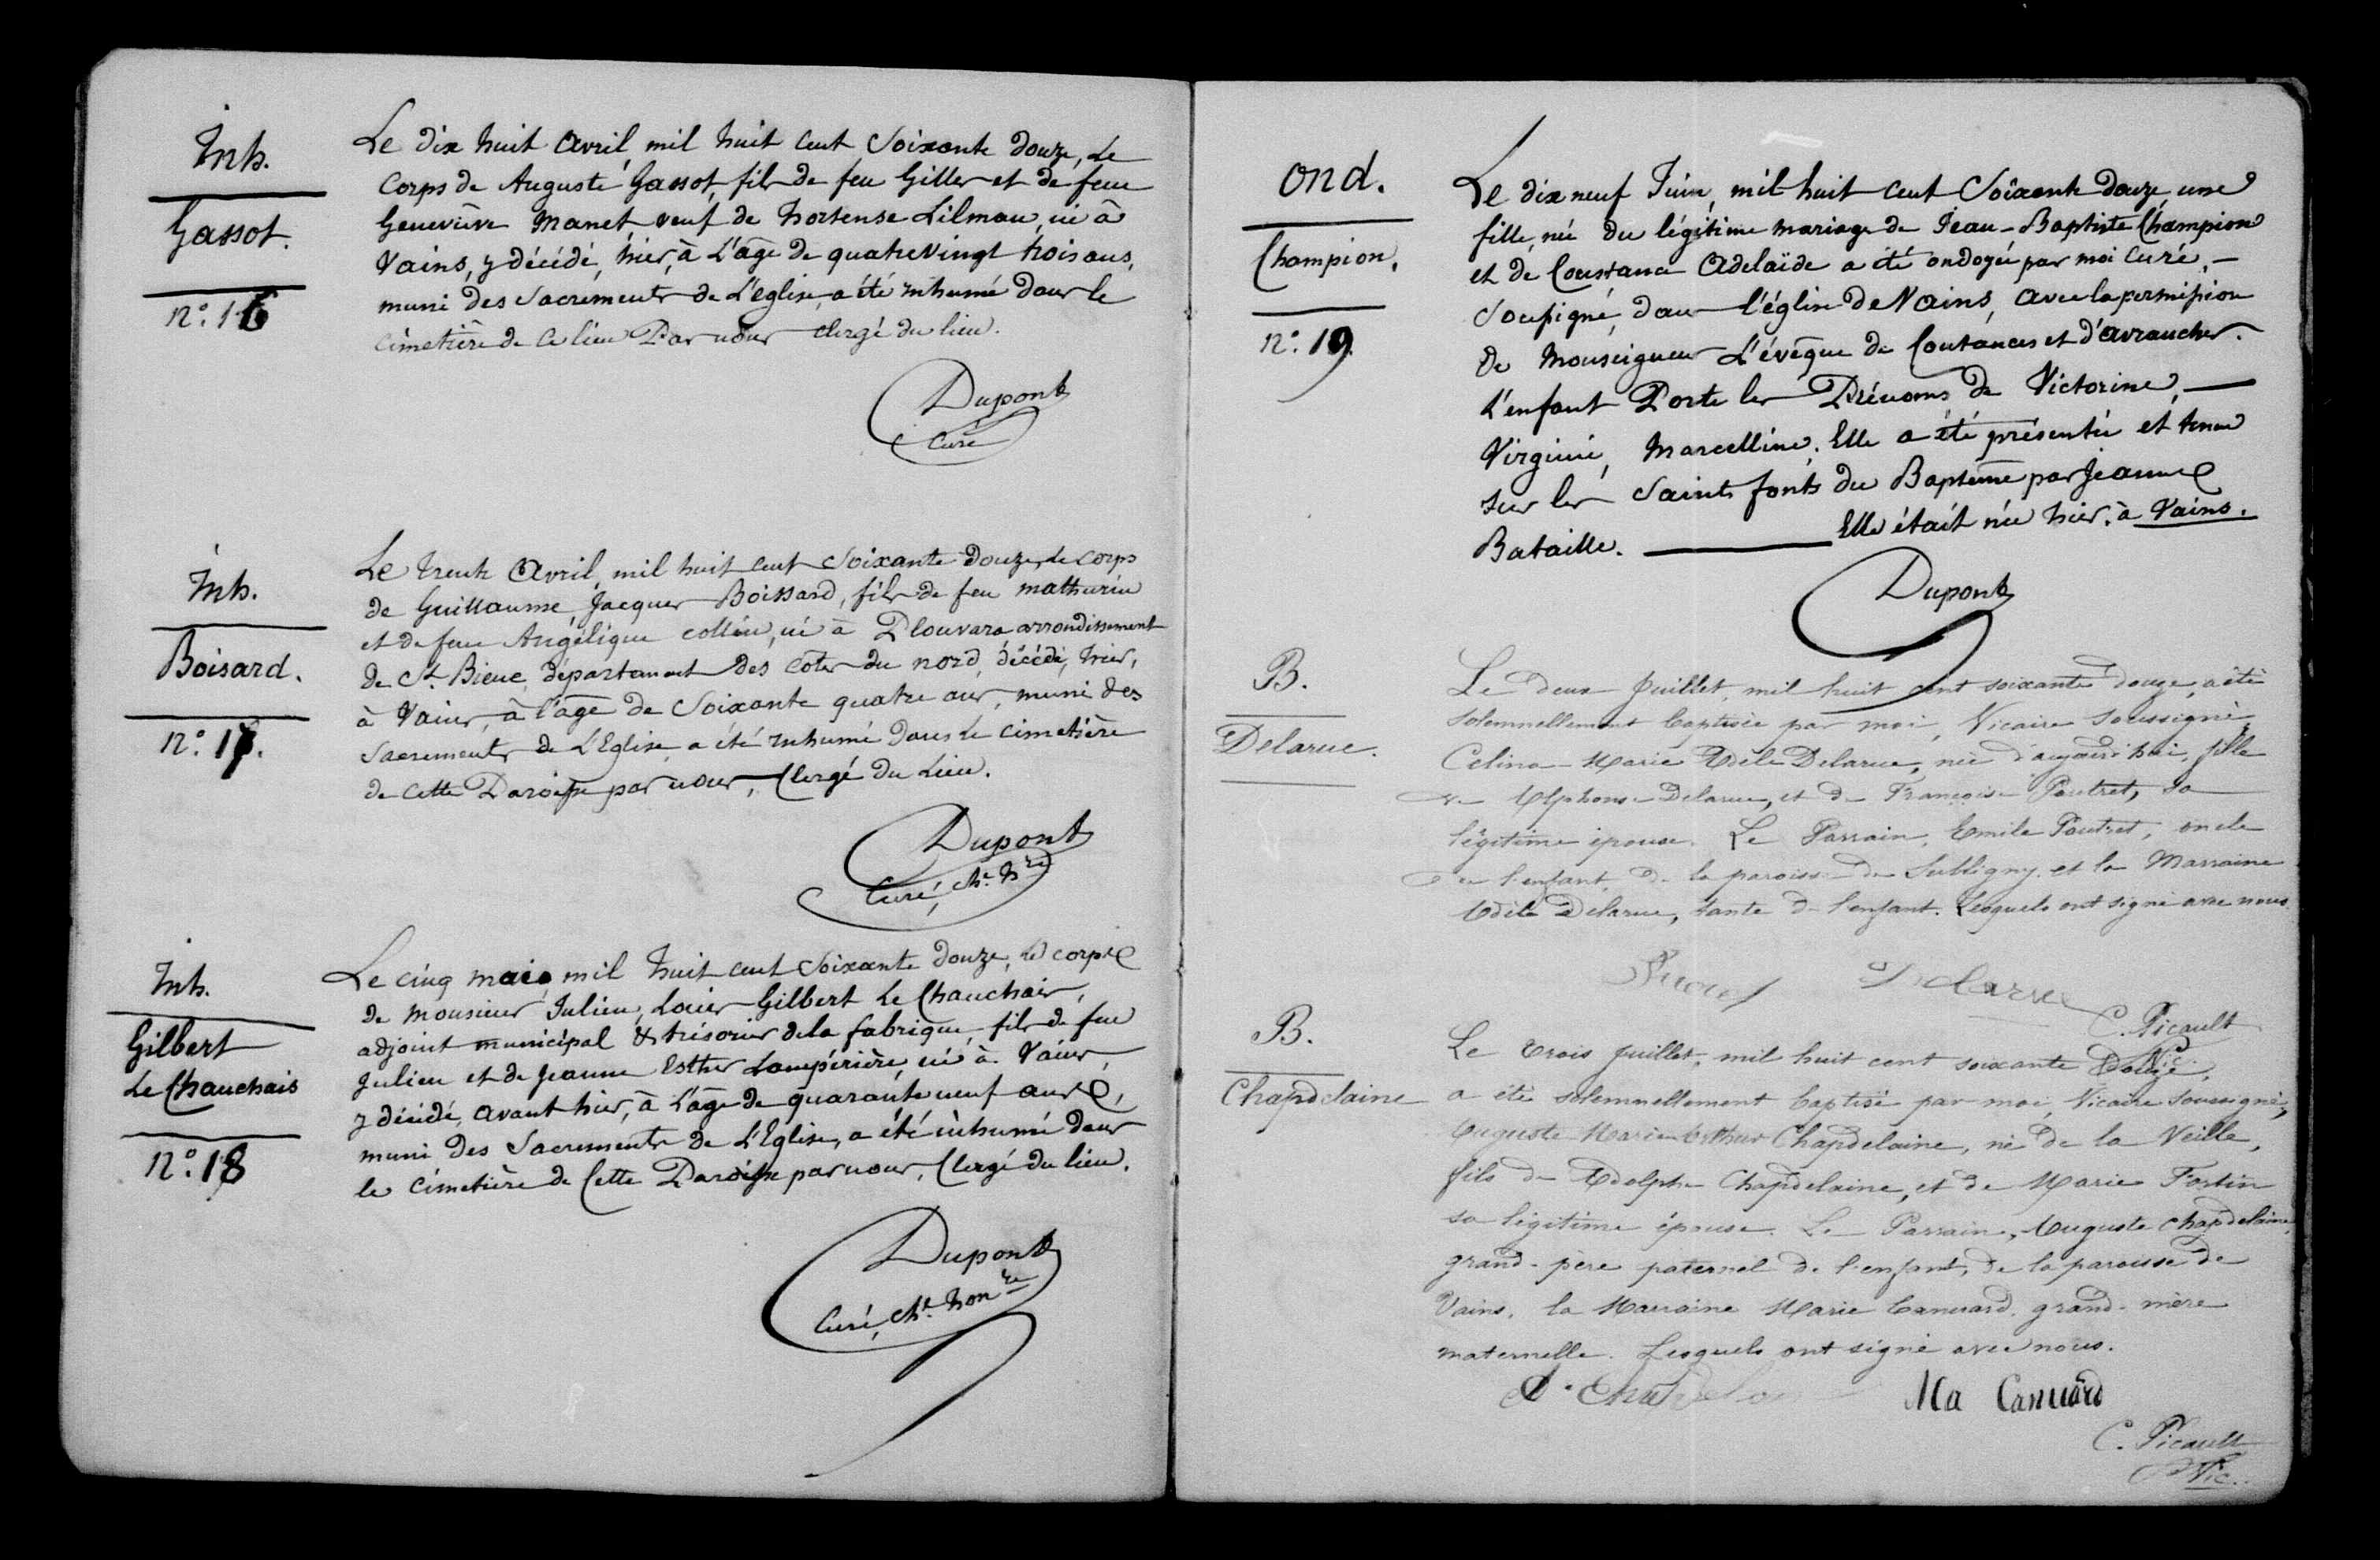 Inh.
Gassot.
n.° 16
Le dix huit avril, mil huit cent soixante douze, le
corps de Auguste Gassot, fils de feu Gilles et de feue
Geneviève Manet, veuf de hortense Lilman, né à
Vains, y décédé, hier, à l'âge de quatre vingt trois ans,
muni des sacrements de l'église, a été inhumé dans le
cimetière de ce lieu Par nous clergé du lieu.
Dupont
Curé
Inh.
Boisard.
n.° 17.
Le trente avril, mil huit cent soixante douze, le corps
de Guillaume, Jacques Boissard, fils de feu mathurin
et de feue Angélique collin, né à Plouvara, arrondissement
de St. Brieuc, département des côtes du nord, décédé, hier,
à Vains, à l'âge de soixante quatre ans, muni des
sacrements de l'Eglise, a été inhumé dans le cimetière
de cette Paroisse par nous, Clergé du lieu.
Dupont
Curé, ch. hre
Inh.
Gilbert
Le Chauchais
n.° 18
Le cinq mais, mil huit cent soixante douze, le corps
de monsieur Julien, Louis Gilbert Le Chauchais,
adjoint municipal & trésorier de la fabrique, fils de feu
Julien et de Jeanne Esther Lampérière, né à Vains,
y décédé, avant hier, à l'âge de quarante neuf ans,
muni des Sacrements de l'Eglise, a été inhumé dans
le cimetière de Cette Paroisse par nous, Clergé du lieu.
Dupont
Curé, ch. honre
ond.
Champion.
n.° 19.
Le dix neuf Juin, mil huit cent soixante douze, une
fille, née du légitime mariage de Jean-Baptiste Champion
et de Constance Adelaïde a été ondoyée par moi Curé,
soussigné, dans l'église de Vains, avec la permission
de Monseigneur L'évêque de Coutances et d'avranches.
L'enfant Porte les Prénoms de Victorine,
Virginie, Marcelline. Elle a été présentée et tenue
sur les Saints fonts du Baptême par Jeanne
Bataille. Elle était née hier, à Vains.
Dupont
B.
Delarue.
Le deux juillet, mil huit cent soixante douze, a été
solemnellement baptisée par moi, Vicaire soussigné,
Celina-Marie Adèle Delarue, née d'aujourd'hui, fille
de Alphonse Delarue, et de Françoise Poutret, sa
légitime épouse. Le Parrain, Emile Poutret, oncle
de l'enfant, de la paroisse de Subligny, et la Marraine
Adèle Delarue, tante de l'enfant. Lesquels ont signé avec nous.
Delarue
C. Picault
Vic.
B.
Chapdelaine
Le trois juillet, mil huit cent soixante douze,
a été solemnellement baptisé par moi, Vicaire soussigné,
Auguste Marie Arthur Chapdelaine, né de la Veille,
fils de Adolphe Chapdelaine, et de Marie Fortin
sa légitime épouse. Le Parrain, Auguste Chapdelaine,
grand-père paternel de l'enfant, de la paroisse de
Vains, la Marraine Marie Canuard, grand-mère
maternelle. Lesquels ont signé avec nous.
Ma Canuard
C. Picault
Vic.